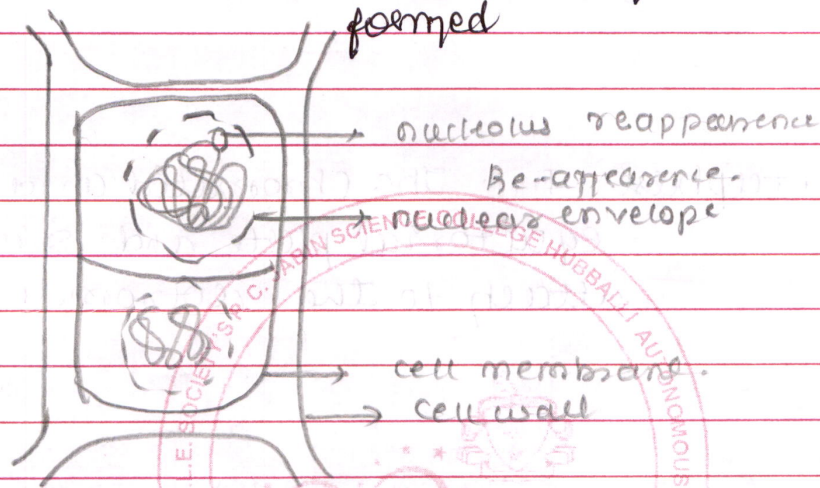 formed
nucleolus reappearence
Re-appearence.
nuclear envelope
cell membrane.
cell wall
K.L.E. SOCIETY'S P. C. JABIN SCIENCE COLLEGE HUBBALLI AUTONOMOUS